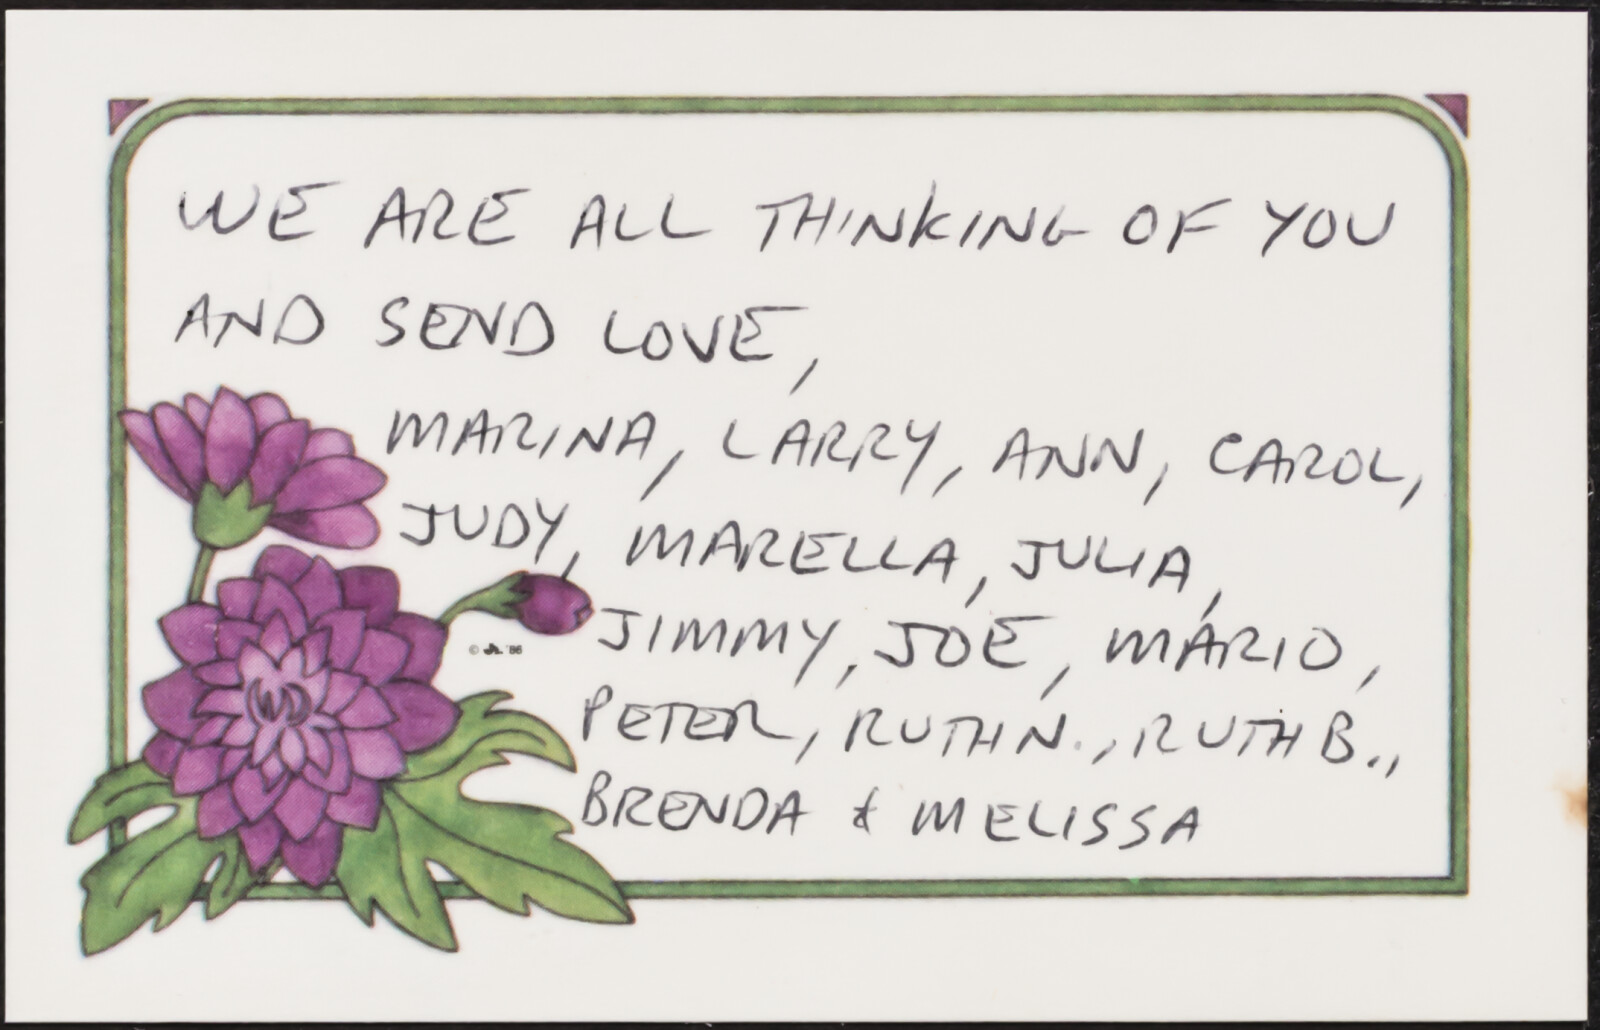 WE ARE ALL THINKING OF YOU
AND SEND LOVE,
MARINA, LARRY, ANN, CAROL,
JUDY, MARELLA, JULIA,
JIMMY, JOE, MARIO,
PETER, RUTH N., RUTH B.,
BRENDA & MELISSA
© JR. '86